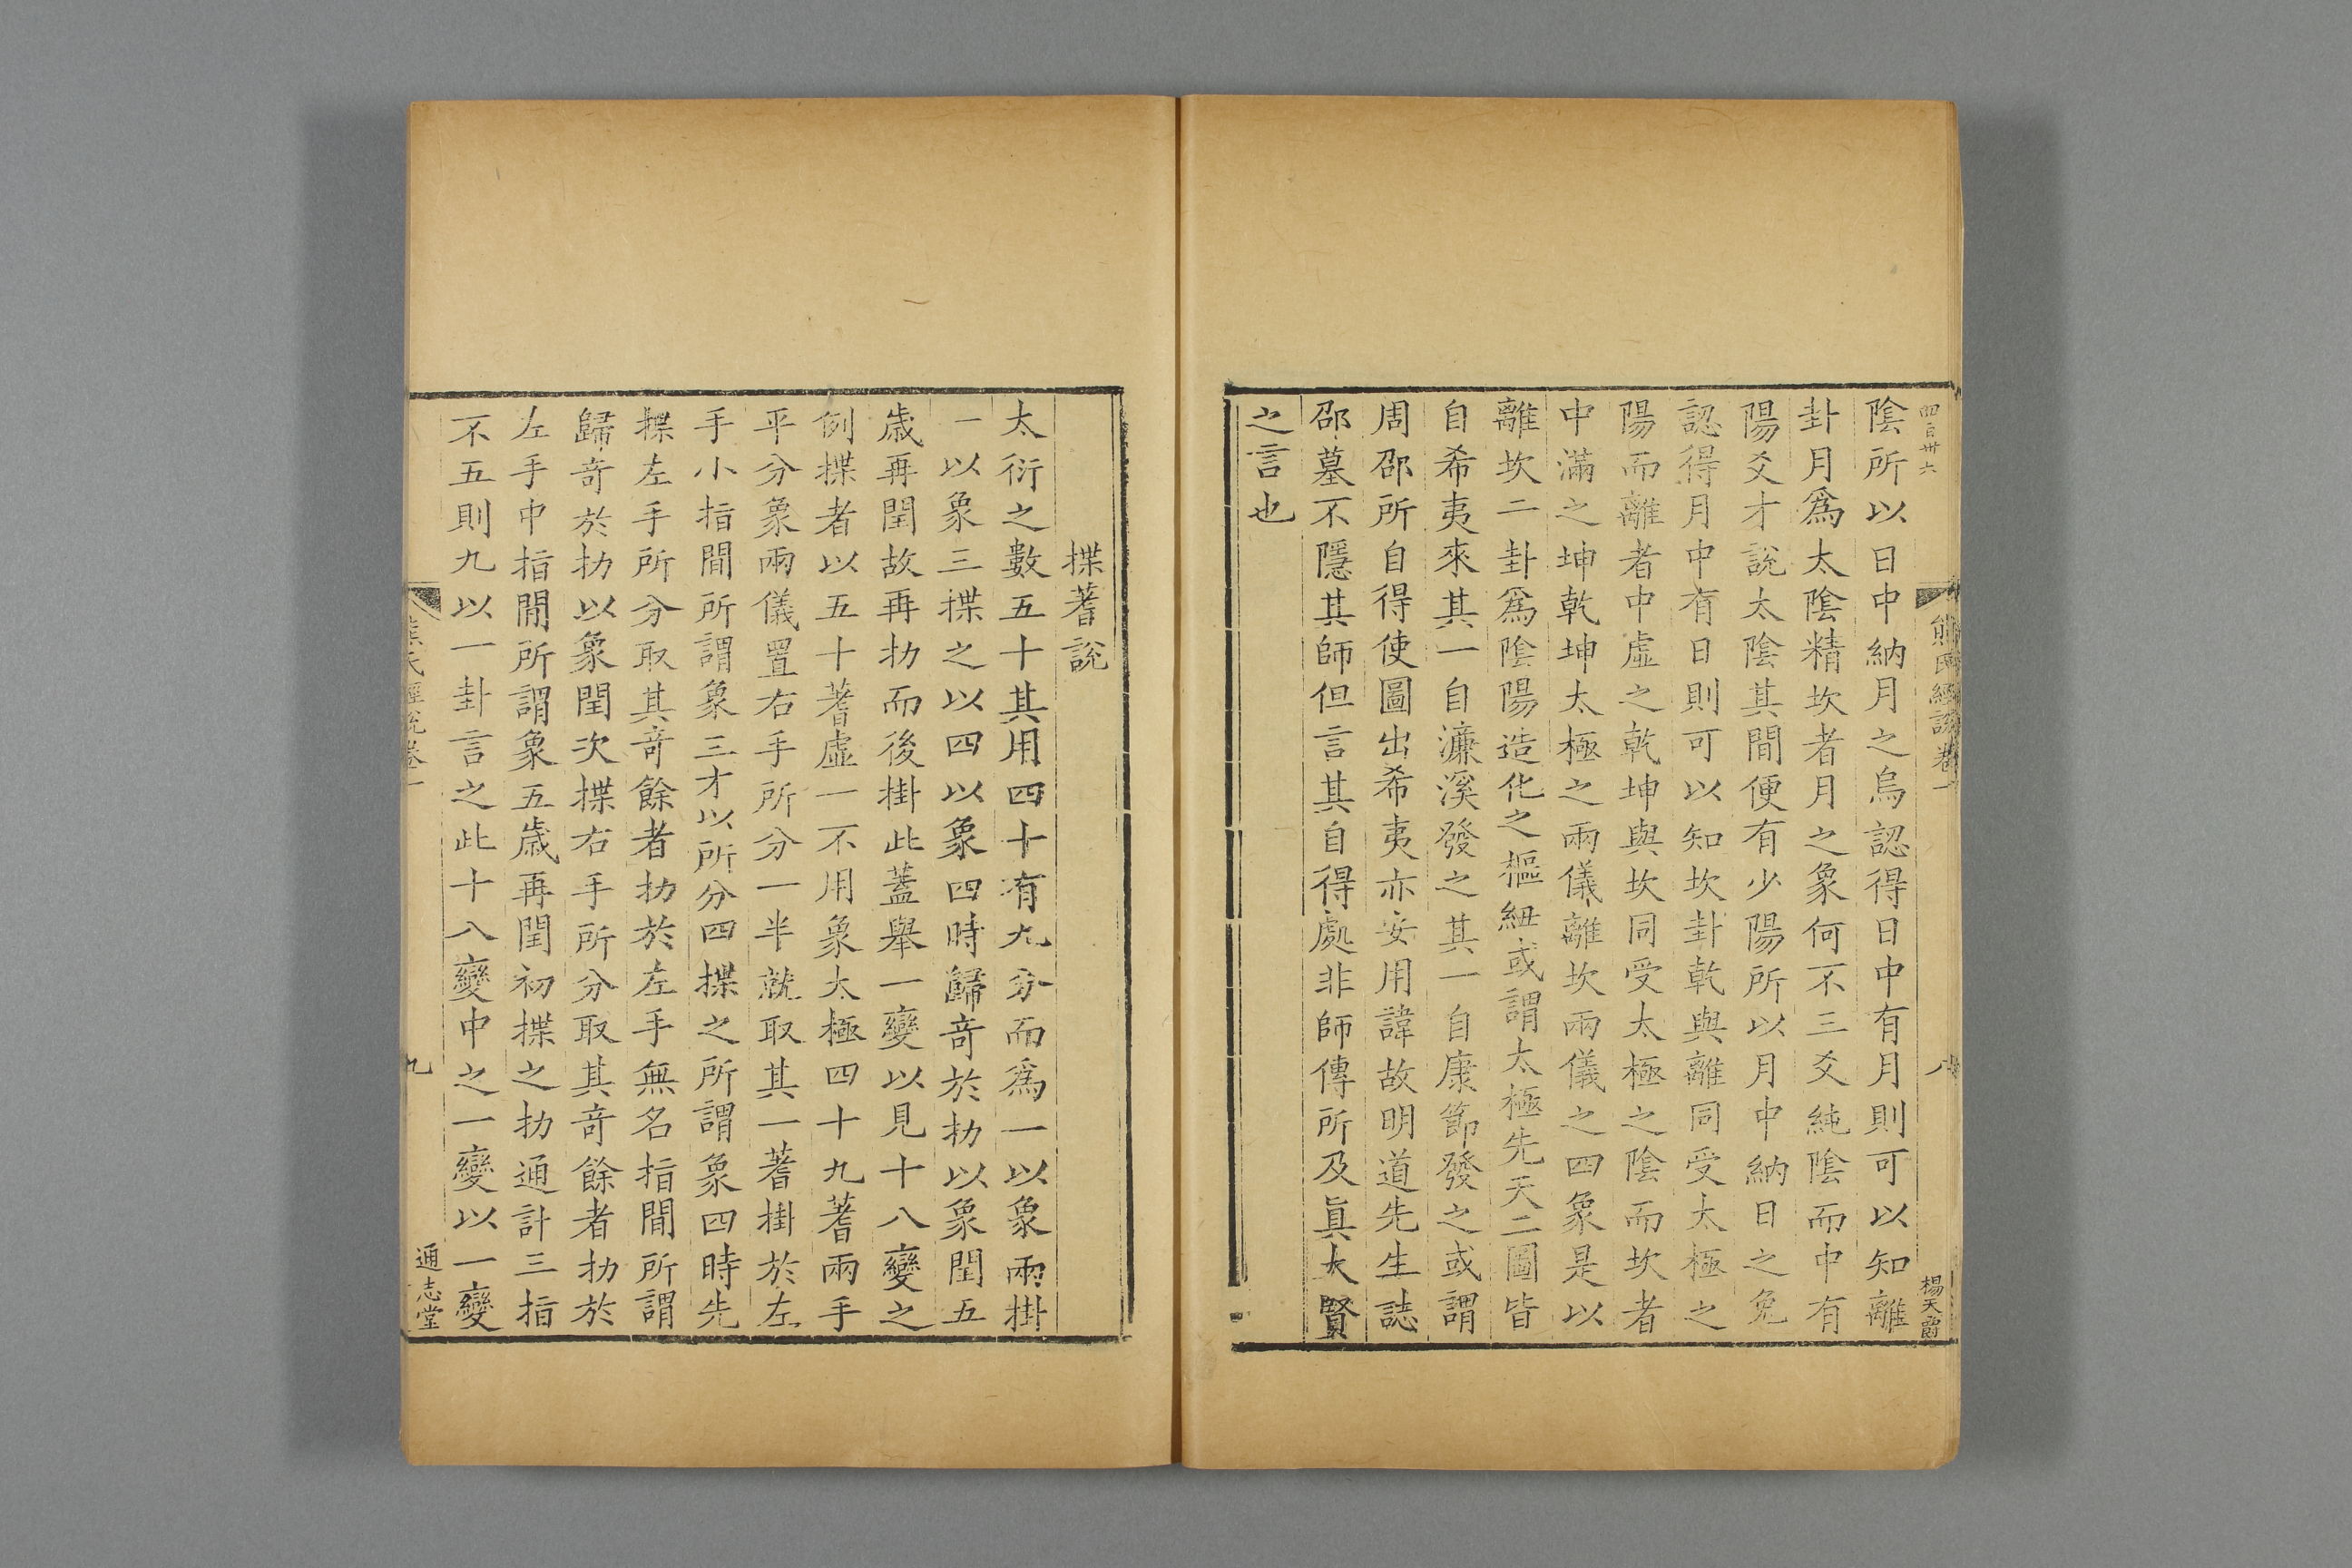 四百卅六
熊氏經說卷一
八
楊天爵
陰所以日中納月之烏認得日中有月則可以知離
卦月爲太陰精坎者月之象何不三爻純陰而中有
陽爻才說太陰其間便有少陽所以月中納日之兔
認得月中有日則可以知坎卦乾與離同受太極之
陽而離者中虛之乾坤與坎同受太極之陰而坎者
中滿之坤乾坤太極之兩儀離坎兩儀之四象是以
離坎二卦爲陰陽造化之樞紐或謂太極先天二圖皆
自希夷來其一自濂溪發之其一自康節發之或謂
周邵所自得使圖出希夷亦安用諱故明道先生誌
邵墓不隱其師但言其自得處非師傳所及眞大賢
之言也
揲蓍說
太衍之數五十其用四十有九分而爲一以象兩掛
一以象三揲之以四以象四時歸奇於扐以象閏五
歲再閏故再扐而後掛此蓋舉一變以見十八變之
例揲者以五十蓍虛一不用象太極四十九蓍兩手
平分象兩儀置右手所分一半就取其一蓍掛於左
手小指間所謂象三才以所分四揲之所謂象四時先
揲左手所分取其奇餘者扐於左手無名指間所謂
歸奇於扐以象閏次揲右手所分取其奇餘者扐於
左手中指間所謂象五歲再閏初揲之扐通計三指
不五則九以一卦言之此十八變中之一變以一變
熊氏經說卷一
九
通志堂